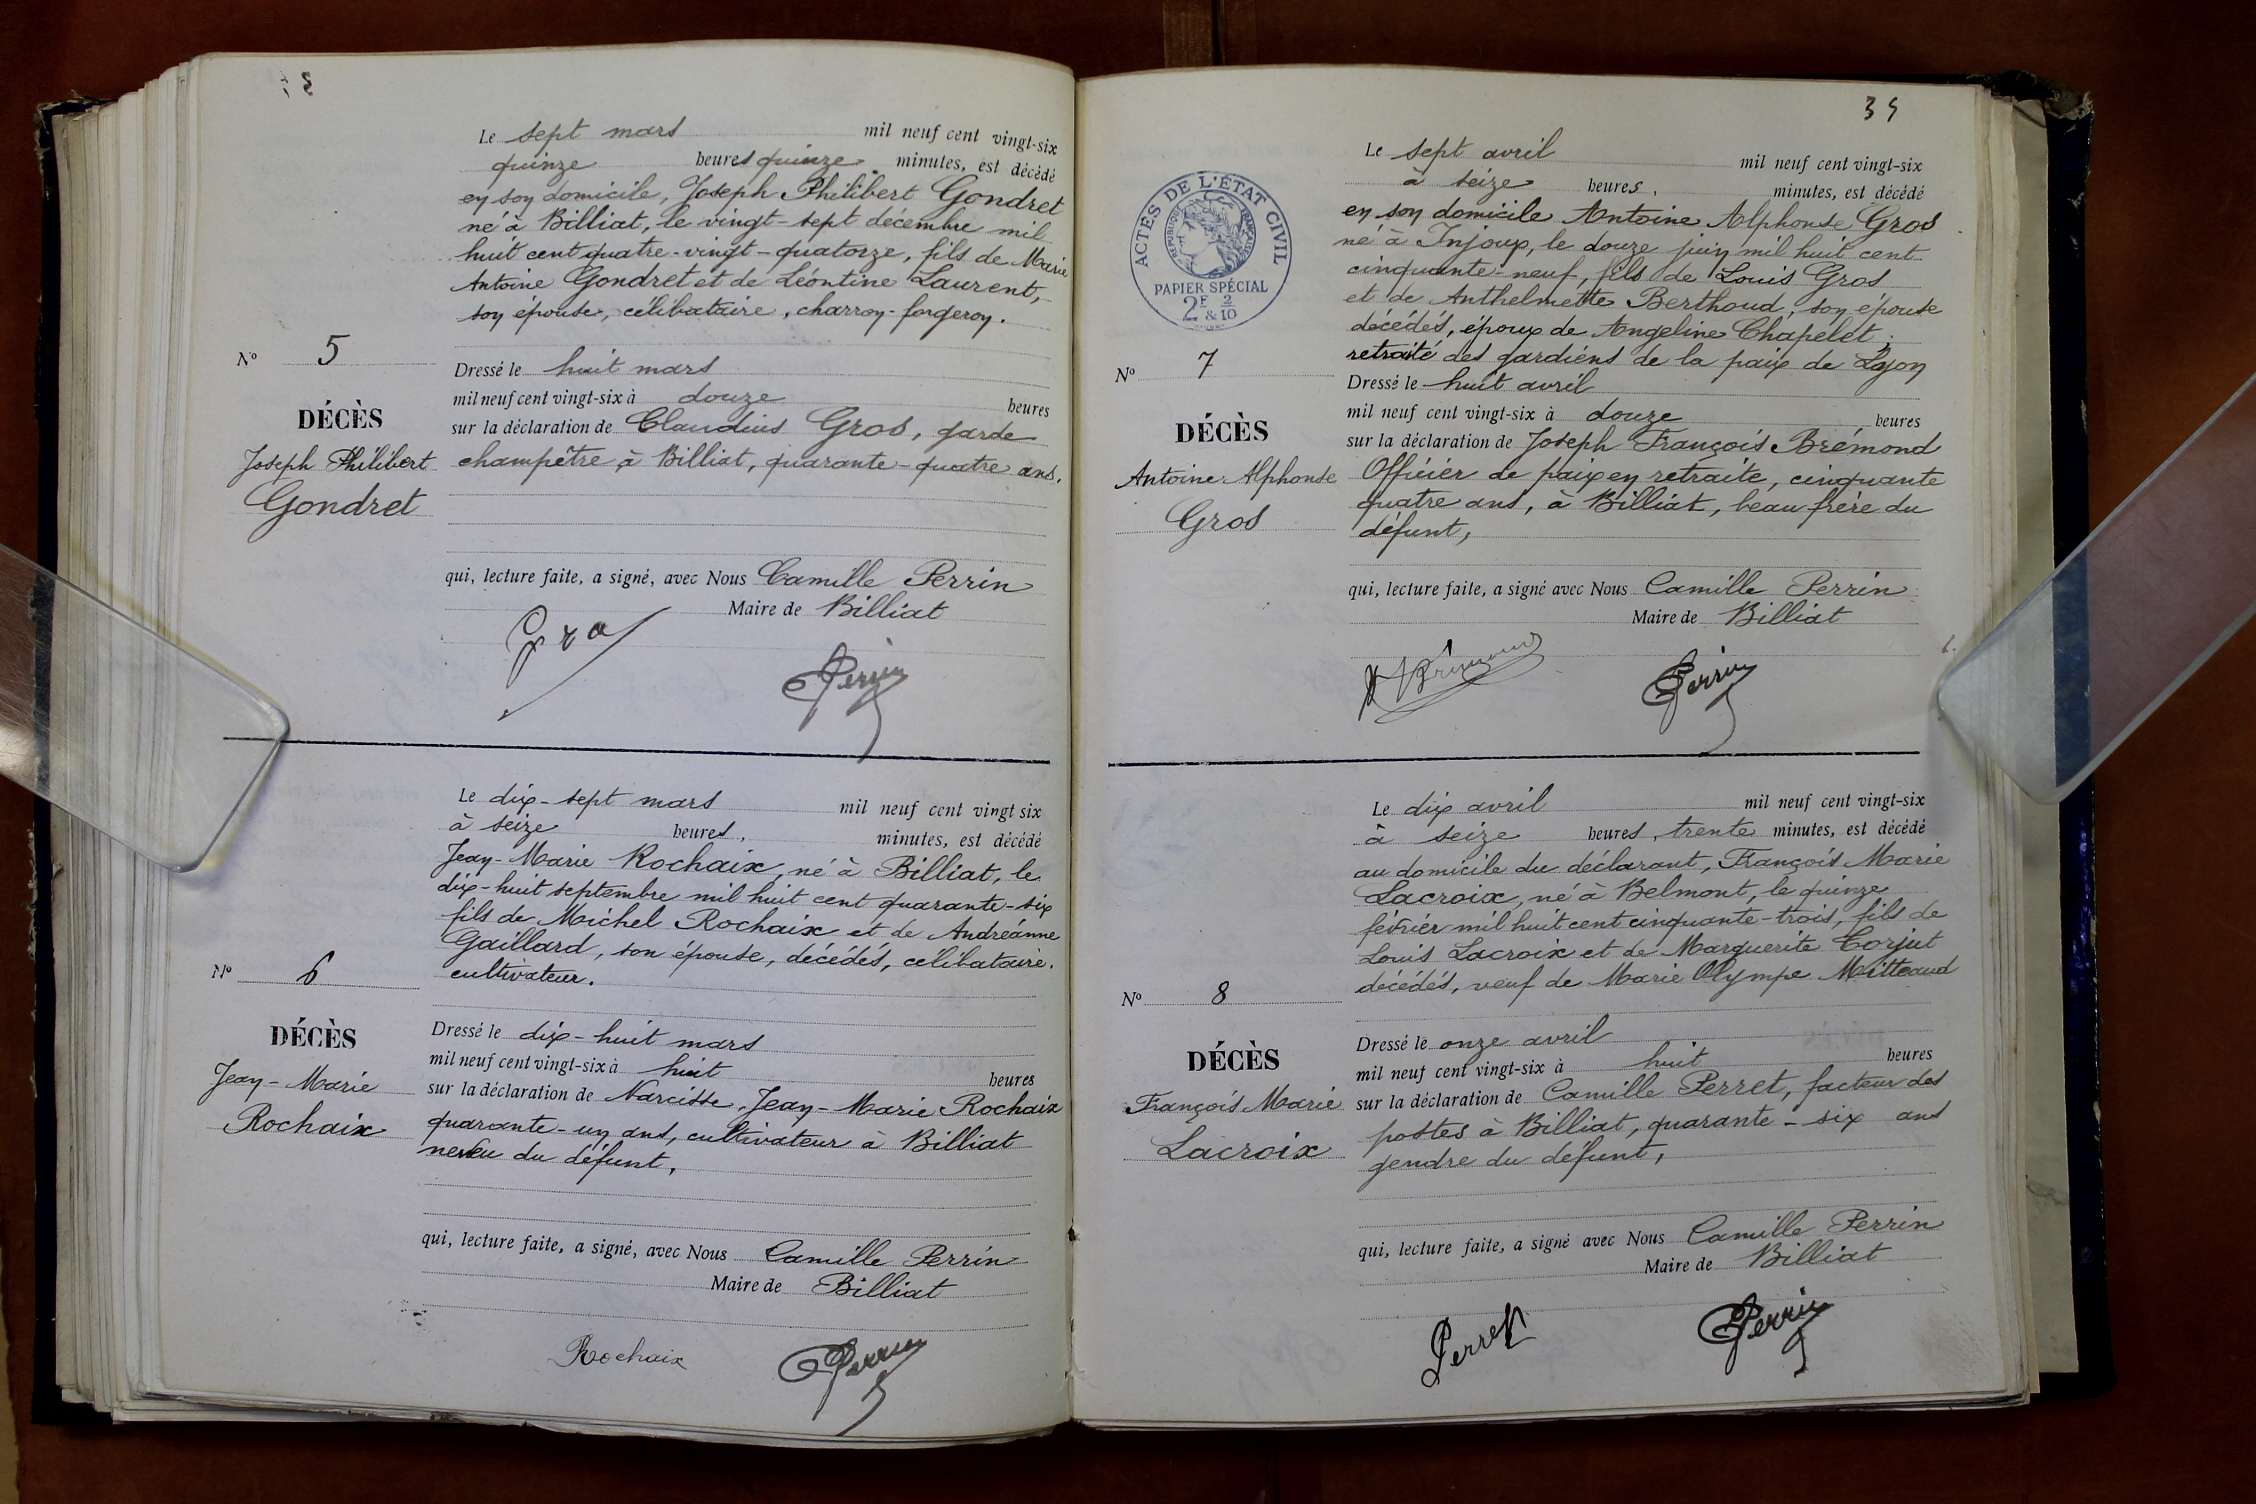 Le sept mars mil neuf cent vingt-six
quinze heures quinze minutes, est décédé
en son domicile, Joseph Philibert Gondret
né à Billiat, le vingt-sept décembre mil
huit cent quatre-vingt-quatorze, fils de Marie
Antoine Gondret et de Léontine Laurent,
son épouse, célibataire, charron-forgeron.
N° 5
DÉCÈS
Joseph Philibert
Gondret
Dressé le huit mars
mil neuf cent vingt-six à douze heures
sur la déclaration de Claudius Gros, garde
champêtre à Billiat, quarante-quatre ans.
qui, lecture faite, a signé, avec Nous Camille Perrin
Maire de Billiat
Gros
Perrin
Le dix-sept mars mil neuf cent vingt six
à seize heures, minutes, est décédé
Jean-Marie Rochaix, né à Billiat, le
dix-huit septembre mil huit cent quarante-six
fils de Michel Rochaix et de Andréanne
Gaillard, son épouse, décédés, célibataire.
cultivateur.
N° 6
DÉCÈS
Jean-Marie
Rochaix
Dressé le dix-huit mars
mil neuf cent vingt-six à huit heures
sur la déclaration de Narcisse, Jean-Marie Rochaix
quarante-un ans, cultivateur à Billiat
neveu du défunt,
qui, lecture faite, a signé, avec Nous Camille Perrin
Maire de Billiat
Rochaix
Perrin
35
ACTES DE L'ÉTAT CIVIL
RÉPUBLIQUE FRANÇAISE
PAPIER SPÉCIAL
2F & 2/10
Le sept avril mil neuf cent vingt-six
à seize heures, minutes, est décédé
en son domicile Antoine Alphonse Gros
né à Injoux, le douze juin mil huit cent
cinquante-neuf, fils de Louis Gros
et de Anthelmette Berthoud, son épouse
décédés, époux de Angeline Chapelet,
retraité des gardiens de la paix de Lyon
N° 7
DÉCÈS
Antoine Alphonse
Gros
Dressé le huit avril
mil neuf cent vingt-six à douze heures
sur la déclaration de Joseph François Brémond
Officier de paix en retraite, cinquante
quatre ans, à Billiat, beau frère du
défunt,
qui, lecture faite, a signé avec Nous Camille Perrin
Maire de Billiat
Brémond
Perrin
Le dix avril mil neuf cent vingt-six
à seize heures, trente minutes, est décédé
au domicile du déclarant, François Marie
Lacroix, né à Belmont, le quinze
février mil huit cent cinquante-trois, fils de
Louis Lacroix et de Marguerite Corjut
décédés, veuf de Marie Olympe Mitteaud
N° 8
DÉCÈS
François Marie
Lacroix
Dressé le onze avril
mil neuf cent vingt-six à huit heures
sur la déclaration de Camille Perret, facteur des
postes à Billiat, quarante-six ans
gendre du défunt,
qui, lecture faite, a signé avec Nous Camille Perrin
Maire de Billiat
Perret
Perrin